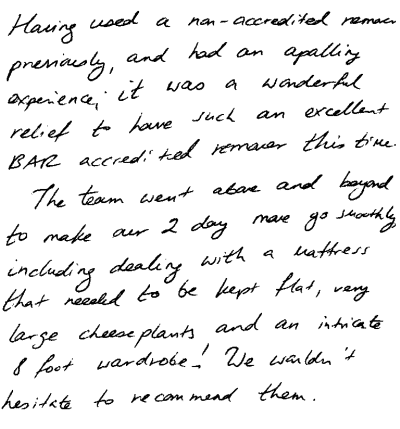 Having used a non-accredited remover
previously, and had an apalling
experience, it was a wonderful
relief to have such an excellent
BAR accredited remover this time.
The team went above and beyond
to make our 2 day move go smoothly,
including dealing with a mattress
that needed to be kept flat, very
large cheeseplants and an intricate
8 foot wardrobe! We wouldn't
hesitate to recommend them.